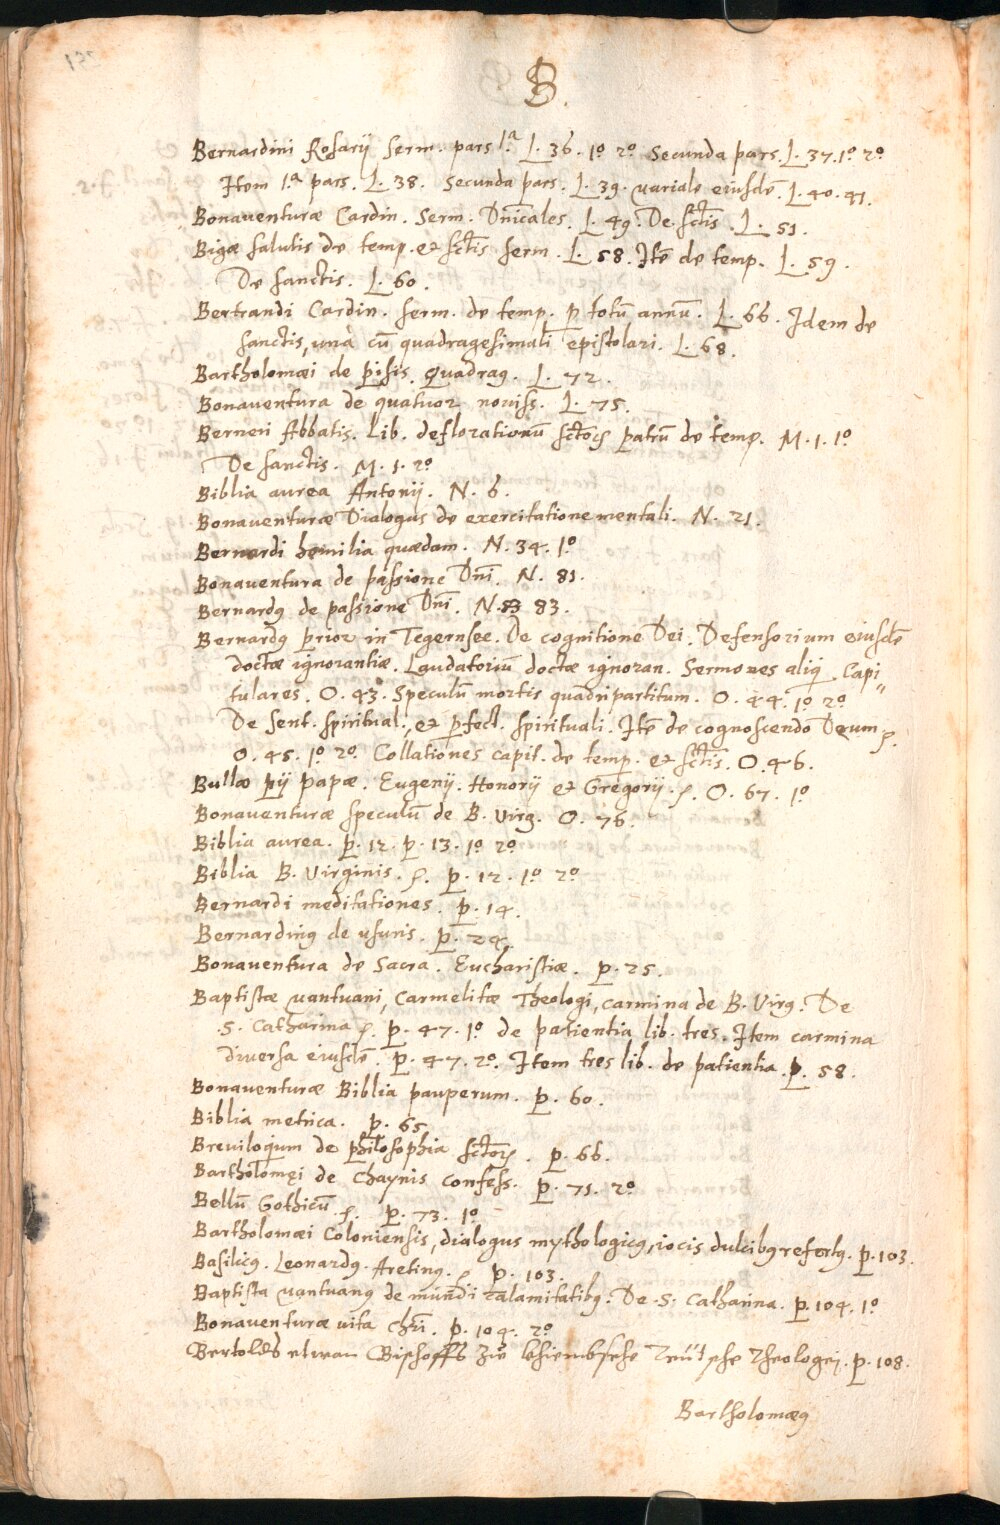 152
B.
Bernardini Rosarij Serm. pars 1ª. L. 36. 1º 2º Secunda pars. L. 37. 1º 2º
Item 1ª pars. L. 38. Secunda pars. L. 39. variale eiusdē. L. 40. 41.
Bonaventuræ Cardin. Serm. Dnicales. L. 49. De Sctis. L. 51.
Bigæ salutis de temp. et sctis serm. L. 58. Itē de temp. L. 59.
De sanctis. L. 60.
Bertrandi Cardin. serm. de temp. p totū annū. L. 66. Idem de
sanctis, unà cū quadragesimali epistolari. L. 68.
Bartholomæi de pisis. Quadrag. L. 72.
Bonaventura de quatuor noviss. L. 75.
Berneri Abbatis. Lib. deflorationū sctorꝝ patrū de temp. M. 1. 1º
De sanctis. M. 1. 2º
Biblia aurea Antonij. N. 6.
Bonaventuræ Dialogus de exercitatione mentali. N. 21.
Bernardi homilia quædam. N. 34. 1º
Bonaventura de passione Dni. N. 81.
Bernardꝰ de passione Dni. N. 83 83.
Bernardꝰ prior in Tegernsee. De cognitione Dei. Defensorium eiusdē
doctæ ignorantiæ. Laudatoriū doctæ ignoran. Sermones aliq. Capi
tulares. O. 43. Speculū mortis quadripartitum. O. 44. 1º 2º
De sent. spiritual. et pfect. spirituali. Itē de cognoscendo Deum
O. 45. 1º 2º Collationes capit. de temp. et sctis. O. 46.
Bullæ pij papæ. Eugenij. Honorij et Gregorij. O. 67. 1º
Bonaventuræ speculū de B. Virg. O. 76.
Biblia aurea. P. 12. P. 13. 1º 2º
Biblia B. Virginis. P. 12. 1º 2º
Bernardi meditationes. P. 14.
Bernardinꝰ de usuris. P. 24.
Bonaventura de Sacra. Eucharistiæ. P. 25.
Baptistæ Mantuani, Carmelitæ Theologi, carmina de B. Virg. De
S. Catharina P. 47. 1º de patientia lib. tres. Item carmina
diversa eiusdē. P. 47. 2º. Item tres lib. de patientia. P. 58.
Bonaventuræ Biblia pauperum. P. 60.
Biblia metrica. P. 65.
Breviloqium de philosophia sctorꝝ. P. 66.
Bartholomęi de Chaynis confess. P. 71. 2º
Bellū Gothicū. P. 73. 1º
Bartholomæi Coloniensis, dialogus mythologicꝰ, iocis dulcibꝰ refertꝰ. P. 103.
Basilicꝰ. Leonardꝰ. Aretinꝰ. P. 103.
Baptista Mantuanꝰ de mundi calamitatibꝰ. De S. Catharina. P. 104. 1º
Bonaventuræ vita Chri. P. 104. 2º
Bertolds etwan Bischoffs zue Chiembsche Teütsche Theologej. P. 108.
Bartholomæꝰ